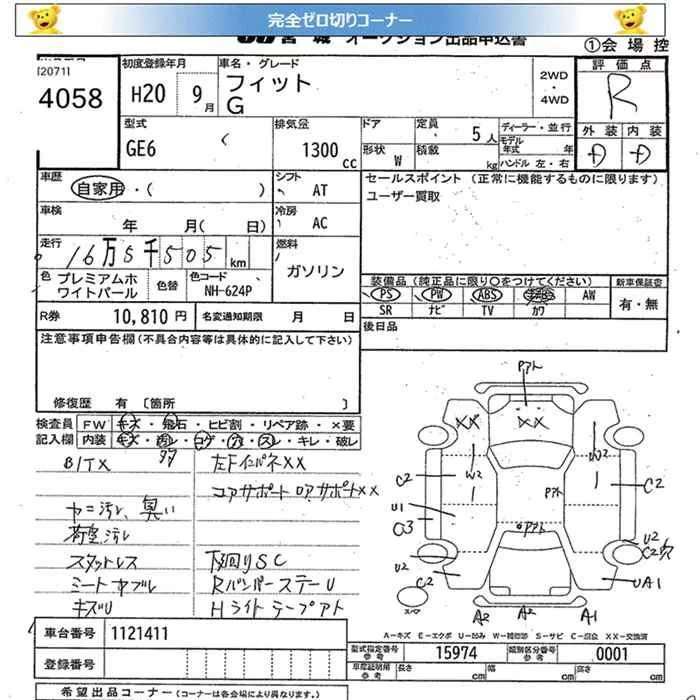 完全ゼロ切りコーナー
宮城 オークション出品申込書
①会場控
[2071]
4058
初度登録年月
H20 9月
車名・グレード
フィット
G
2WD
・
4WD
評価点
R
外装 内装
D D
型式
GE6
排気量
1300cc
ドア
形状 W
定員 5人
積載 kg
ディーラー・並行
モデル年式 年
ハンドル 左・右
車歴
自家用・( )
シフト
AT
セールスポイント (正常に機能するものに限ります)
ユーザー買取
車検
年 月( 日)
冷房
AC
走行
16万5千505km
燃料
ガソリン
色 プレミアムホワイトパール
色替
色コード
NH-624P
装備品(純正品に限り○をつけてください)
PS PW ABS AW
SR ナビ TV カワ
新車保証書
有・無
R券 10,810円
名変通知期限 月 日
後日品
注意事項申告欄(不具合内容等は具体的に記入して下さい)
修復歴 有 〔箇所 〕
検査員記入欄
FW キズ・飛石・ヒビ割・リペア跡・×要
内装 キズ・汚レ・コゲ・穴・スレ・キレ・破レ
B/TX
左Fインパネ××
コアサポート ロアサポート××
ヤニ汚レ、臭い
荷室汚レ
スタッドレス
下回りSC
ミートカブル
RバンパーステーU
キズU
Hライトテープアト
Pアト
×× ××
W2 W2
C2 C2
Pアト
U1
C3
Pアト
U2
C2穴
U2
C2
UA1
スペア
A2 A2 A1
A-キズ E-エクボ U-凹ミ W-補修跡 S-サビ C-腐食 XX-交換済
車台番号 1121411
登録番号
型式指定番号 参考 15974
類別区分番号 参考 0001
車庫証明用 参考 長さ cm 幅 cm 高さ cm
希望出品コーナー (コーナーは各会場により異なります。)